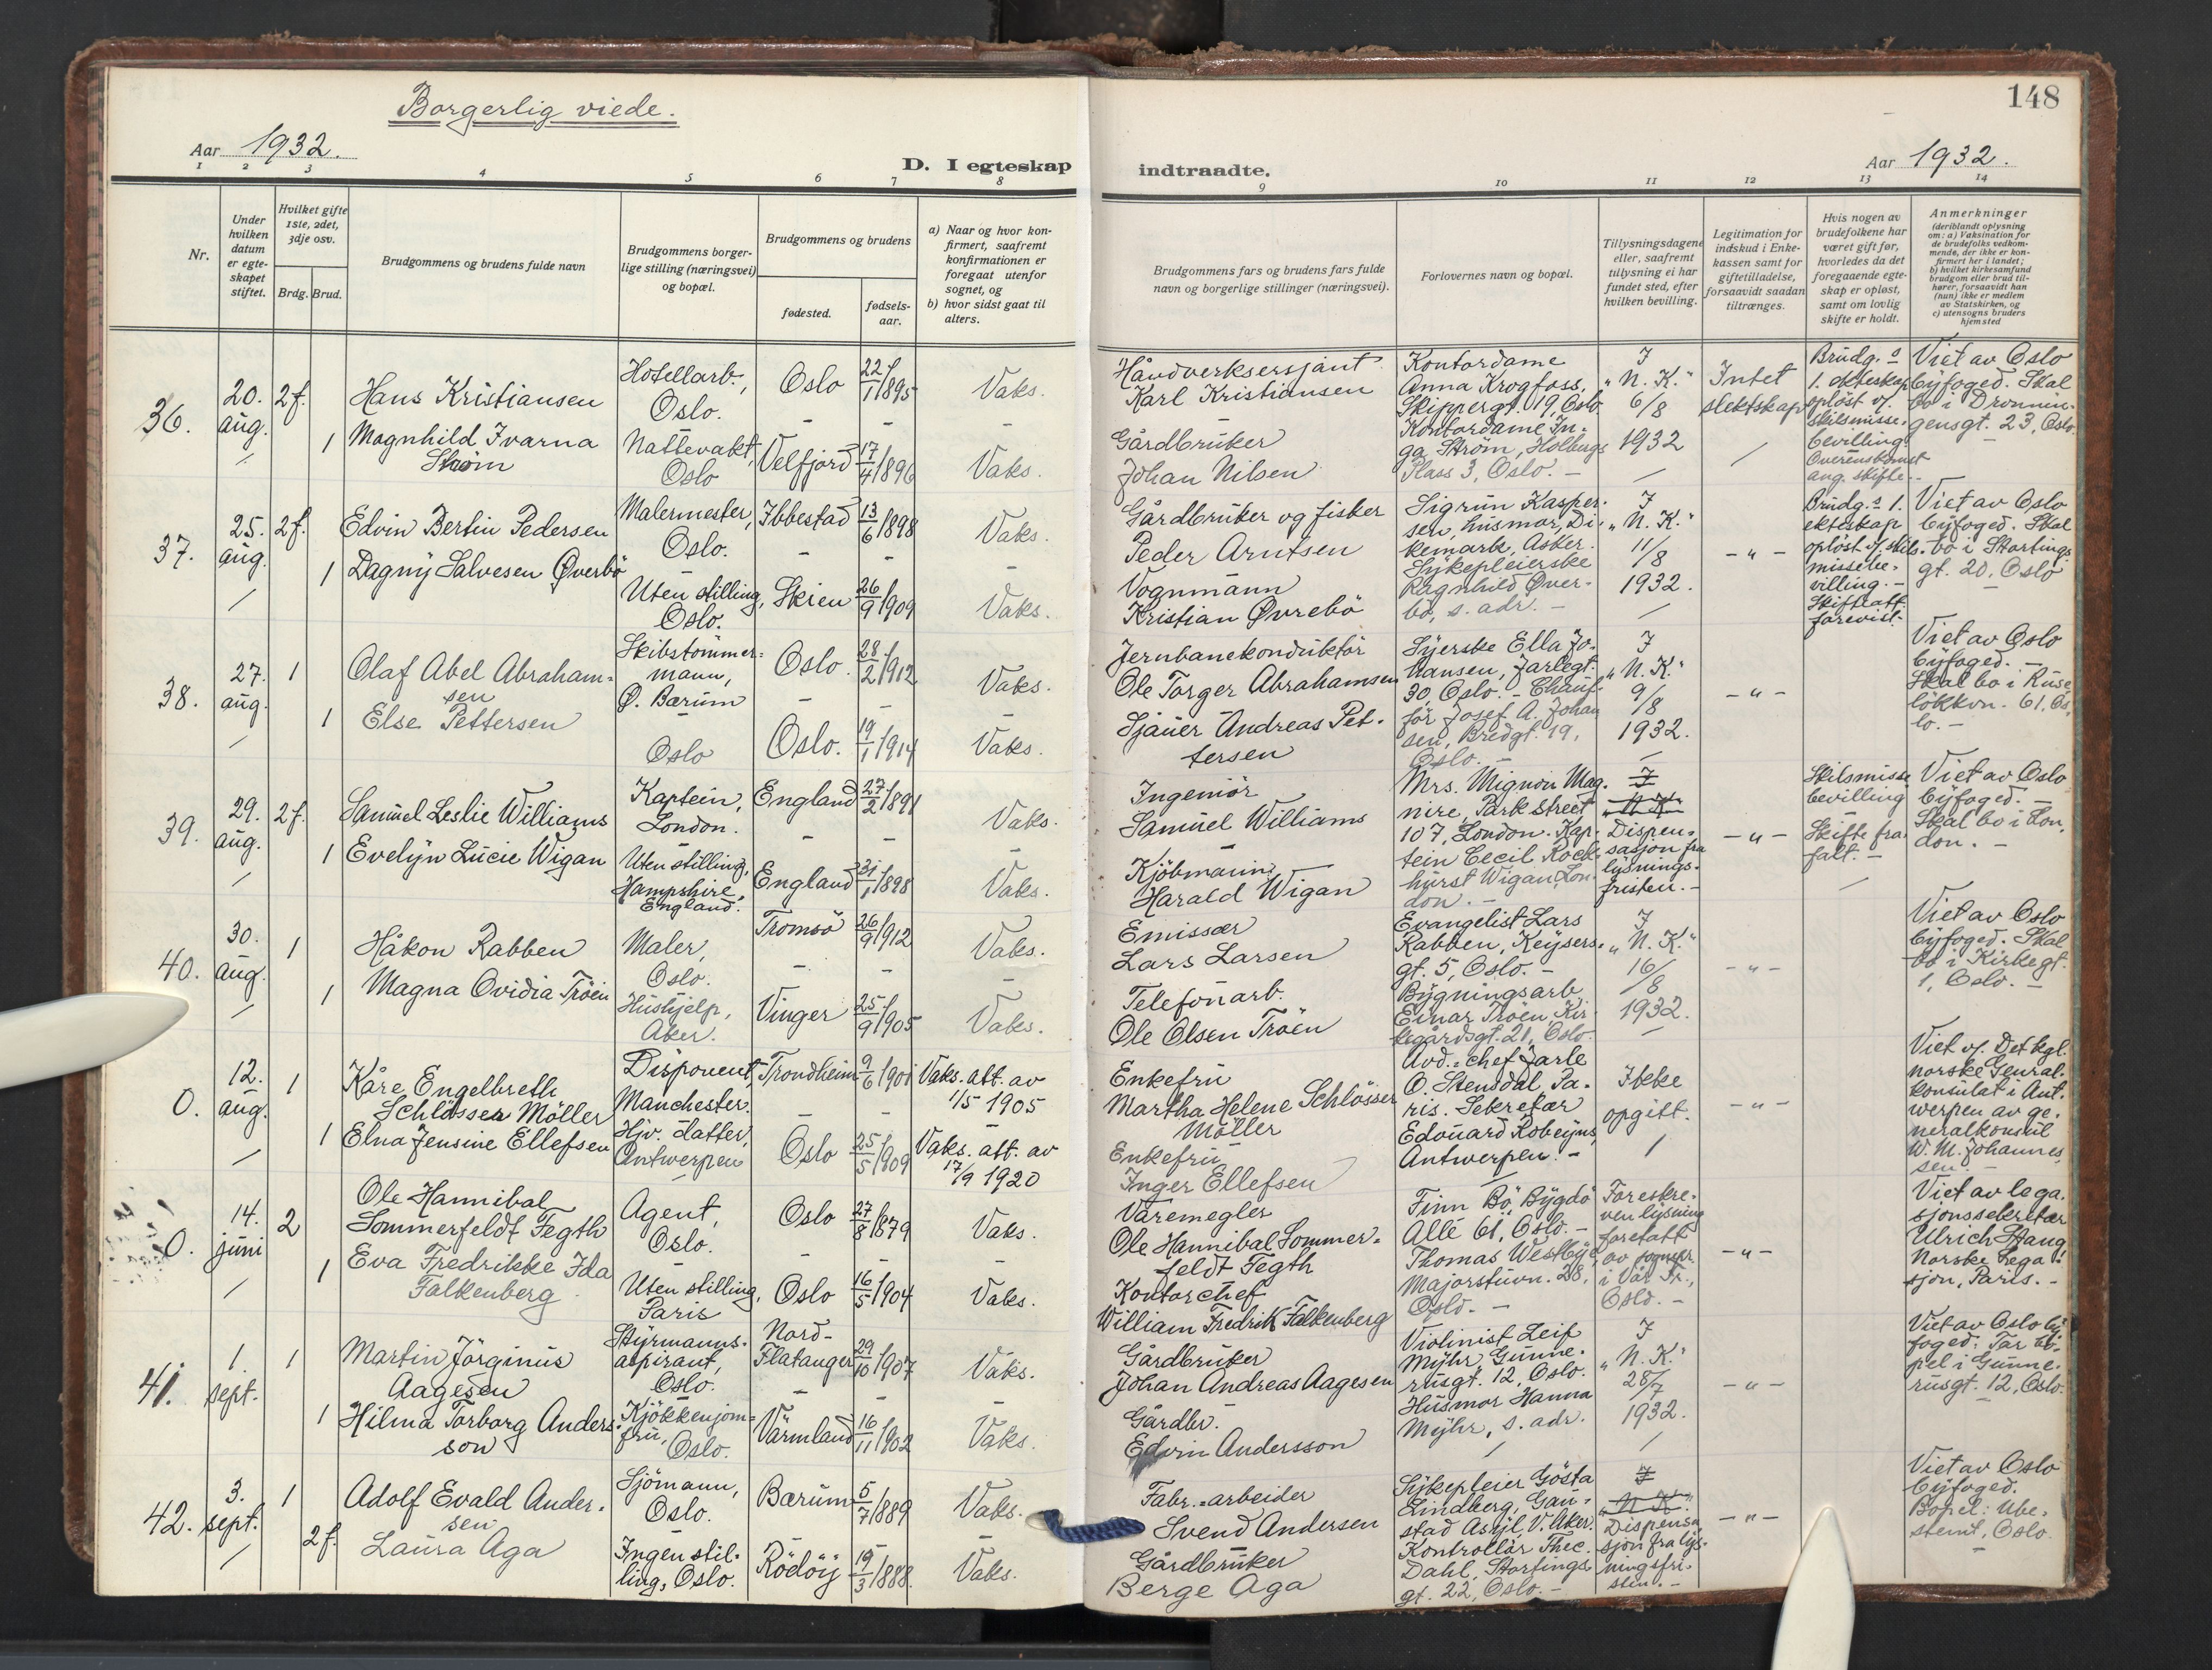 Borgerlig viede.
Aar 1932.
D. I egteskap
1 2 3 4 5 6 7 8
Nr.
Under hvilken datum er egteskapet stiftet.
Hvilket gifte 1ste, 2det, 3dje osv.
Brdg. Brud.
Brudgommens og brudens fulde navn
Brudgommens borgerlige stilling (næringsvei) og bopæl.
Brudgommens og brudens
fødested.
fødselsaar.
a) Naar og hvor konfirmert, saafremt konfirmationen er foregaat utenfor sognet, og
b) hvor sidst gaat til alters.
36. 20. aug. 2f. Hans Kristiansen Hotellarb., Oslo. Oslo 22/1 1895 Vaks.
1 Magnhild Ivarna Strøm Nattevakt, Oslo Velfjord 17/4 1896 Vaks.
37. 25. aug. 2f. Edvin Bertin Pedersen Malermester, Oslo. Ibbestad 13/6 1898 Vaks.
1 Dagny Salvesen Øverbö Uten stilling, Oslo. Skien 26/9 1909 Vaks.
38. 27. aug. 1 Olaf Abel Abrahamsen Skibstömmermann, Ø. Bærum Oslo. 28/2 1912 Vaks.
1 Else Pettersen Oslo Oslo. 19/1 1914 Vaks.
39. 29. aug. 2f. Samuel Leslie Williams Kaptein, London. England 27/2 1891 Vaks.
1 Evelyn Lucie Wigan Uten stilling, Hampshire, England. England 31/1 1898 Vaks.
40. 30. aug. 1 Håkon Rabben Maler, Oslo. Tromsö 26/9 1912 Vaks.
1 Magna Ovidia Tröen Hushjelp, Aker. Vinger 25/9 1905 Vaks.
0. 12. aug. 1 Kåre Engelbreth Schlösser Möller Disponent, Manchester. Trondheim 9/6 1901 Vaks. att. av 1/5 1905
1 Elna Jensine Ellefsen Hjv. datter, Antwerpen Oslo 25/5 1909 Vaks. att. av 17/9 1920
0. 14. juni 2 Ole Hannibal Sommerfeldt Fegth Agent, Oslo. Oslo 27/8 1879 Vaks.
1 Eva Fredrikke Ida Falkenberg Uten stilling, Paris Oslo 16/5 1904 Vaks.
41. 1. sept. 1 Martin Jörginus Aagesen Styrmannsaspirant, Oslo. Nord-Flatanger 29/10 1907 Vaks.
1 Hilma Torborg Andersson Kjökkenjomfru, Oslo. Värmland 16/11 1902 Vaks.
42. 3. sept. 1 Adolf Evald Andersen Sjömann, Oslo. Bærum 5/7 1889 Vaks.
2f. Laura Aga Ingen stilling, Oslo. Rödöy 19/3 1888. Vaks.
148
Aar 1932.
indtraadte.
9 10 11 12 13 14
Brudgommens fars og brudens fars fulde navn og borgerlige stillinger (næringsvei).
Forlovernes navn og bopæl.
Tillysningsdagene eller, saafremt tillysning ei har fundet sted, efter hvilken bevilling.
Legitimation for indskud i Enkekassen samt for giftetilladelse, forsaavidt saadan tiltrænges.
Hvis nogen av brudefolkene har været gift før, hvorledes da det foregaaende egteskap er opløst, samt om lovlig skifte er holdt.
Anmerkninger (deriblandt oplysning om: a) Vaksination for de brudefolks vedkommende, der ikke er konfirmert her i landet; b) hvilket kirkesamfund brudgom eller brud tilhører, forsaavidt han (hun) ikke er medlem av Statskirken, og c) utensogns bruders hjemsted
Håndverksersjant Karl Kristiansen
Gårdbruker Johan Nilsen
Kontordame Anna Krogfoss, Skippergt. 19, Oslo. Kontordame Inga Strøm, Holbergs Plass 3, Oslo. -
I „N. K." 6/8 1932
Intet slektskap
Brudg.s 1. ekteskap oplöst v. skilsmisse-bevilling. Overenskomst ang. skifte. -
Viet av Oslo byfoged. Skal bo i Dronningensgt. 23, Oslo.
Gårdbruker og fisker Peder Arntsen
Vognmann Kristian Øvrebö
Sigrun Kaspersen, husmor, Dikemark, Asker. Sykepleierske Ragnhild Øverbö, s. adr. -
I „N. K." 11/8 1932.
- „ -
Brudg.s 1. ekteskap oplöst v. skilsmissebevilling. - Skifteatt. forevist.
Viet av Oslo byfoged. Skal bo i Stortingsgt. 20, Oslo
Jernbanekonduktör Ole Torger Abrahamsen
Sjauer Andreas Pettersen
Syerske Ella Johansen, Jarlegt. 30, Oslo. - Chaufför Josef A. Johansen, Bredgt. 19, Oslo. -
I „N. K." 9/8 1932.
- „ -
Viet av Oslo byfoged. - Skal bo i Ruselökkvn. 61, Oslo. -
Ingeniör Samuel Williams
Kjöbmann Harald Wigan
Mrs. Mignon Magnire, Park Street 107, London. Kaptein Cecil Rockhurst Wigan, London. -
I „N. K." Dispensasjon fra lysningsfristen. -
- „ -
Skilsmissebevilling Skifte frafalt. -
Viet av Oslo byfoged. - Skal bo i London. -
Emissær Lars Larsen
Telefonarb. Ole Olsen Tröen
Evangelist Lars Rabben, Keysersgt. 5, Oslo. - Bygningsarb. Einar Tröen, Kirkegårdsgt. 21, Oslo.
I „N. K." 16/8 1932.
- „ -
Viet av Oslo byfoged. Skal bo i Kirkegt. 1, Oslo. -
Enkefru Martha Helene Schlösser Möller
Enkefru Inger Ellefsen
Avd.-chef Jarle O. Stensdal, Paris. Sekretær Edouard Robeyns, Antwerpen. -
Ikke opgitt.
- „ -
Viet v. Det kgl. norske Generalkonsulat i Antwerpen av generalkonsul W. M. Johannessen. -
Varemegler Ole Hannibal Sommerfeldt Fegth
Kontorchef William Fredrik Falkenberg
Finn Bö, Bygdö Allé 61, Oslo. - Thomas Westbye, Majorstuvn. 28, Oslo. -
Foreskreven lysning foretatt av sognepr. i Vår Fr., Oslo. -
- „ -
Viet av legasjonssekretær Ulrich Stang, Norske Legasjon, Paris. -
Gårdbruker Johan Andreas Aagesen
Gårdbr. Edvin Andersson
Violinist Leif Myhr, Gunnerusgt. 12, Oslo. Husmor Hanna Myhr, s. adr.
I „N. K." 28/7 1932.
- „ -
Viet av Oslo byfoged. Tar bopel i Gunnerusgt. 12, Oslo.
Fabr.-arbeider Svend Andersen
Gårdbruker Berge Aga
Sykepleier Gösta Lindberg, Gaustad Asyl, V. Aker. Kontrollör Thec. Dahl, Stortingsgt. 22, Oslo. -
I „N. K." Dispensasjon fra lysningsfristen. -
- „ -
Viet av Oslo byfoged. Bopel: Ubestemt, Oslo.